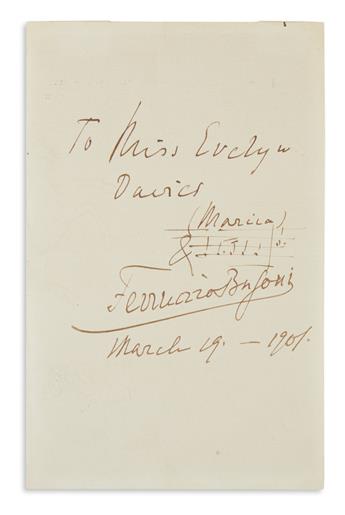 To Miss Evelyn
Davies
(Marcia)
Ferruccio Busoni
March 19. – 1901.